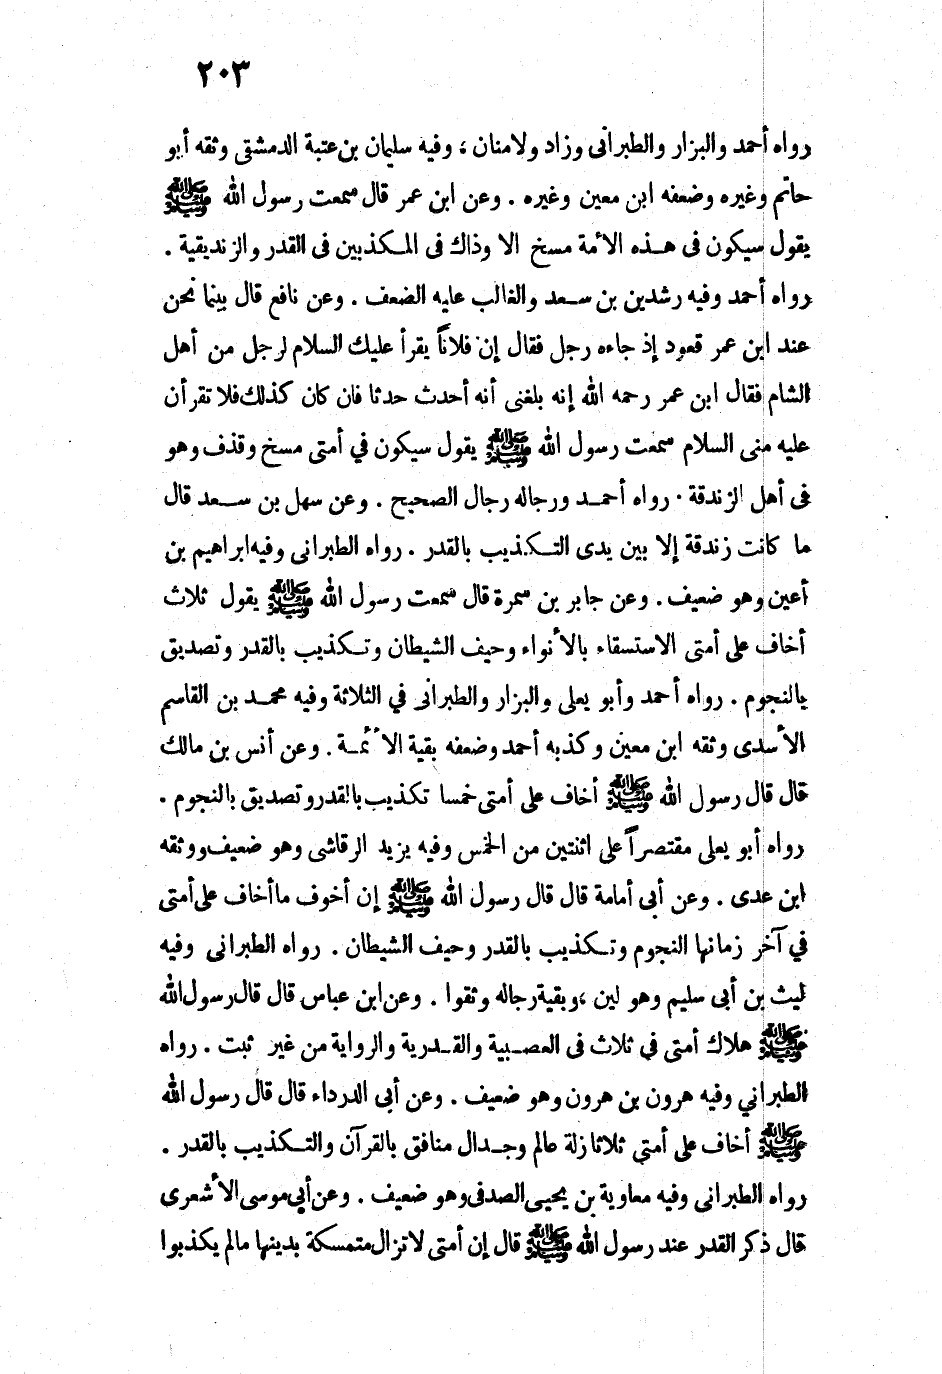 ٢٠٣
رواه أحمد والبزار والطبرانى وزاد ولامنان ، وفيه سليمان بن عتبة الدمشقى وثقه أبو
حاتم وغيره وضعفه ابن معين وغيره . وعن ابن عمر قال سمعت رسول الله ﷺ
يقول سيكون فى هذه الأمة مسخ الا وذاك فى المكذبين فى القدر والزنديقية .
رواه أحمد وفيه رشدين بن سعد والغالب عليه الضعف . وعن نافع قال بينما نحن
عند ابن عمر قعود إذ جاءه رجل فقال إن فلاناً يقرأ عليك السلام لرجل من أهل
الشام فقال ابن عمر رحمه الله إنه بلغنى أنه أحدث حدثا فان كان كذلك فلا تقرأن
عليه منى السلام سمعت رسول الله ﷺ يقول سيكون في أمتى مسخ وقذف وهو
فى أهل الزندقة . رواه أحمد ورجاله رجال الصحيح . وعن سهل بن سعد قال
ما كانت زندقة إلا بين يدى التكذيب بالقدر . رواه الطبرانى وفيه ابراهيم بن
أعين وهو ضعيف . وعن جابر بن سمرة قال سمعت رسول الله ﷺ يقول ثلاث
أخاف على أمتى الاستسقاء بالأنواء وحيف الشيطان وتكذيب بالقدر وتصديق
بالنجوم . رواه أحمد وأبو يعلى والبزار والطبرانى في الثلاثة وفيه محمد بن القاسم
الأسدى وثقه ابن معين وكذبه أحمد وضعفه بقية الأئمة . وعن أنس بن مالك
قال قال رسول الله ﷺ أخاف على أمتى خمسا تكذيب بالقدر وتصديق بالنجوم .
رواه أبو يعلى مقتصراً على اثنتين من الخمس وفيه يزيد الرقاشى وهو ضعيف ووثقه
ابن عدى . وعن أبى أمامة قال قال رسول الله ﷺ إن أخوف ما أخاف على أمتى
في آخر زمانها النجوم وتكذيب بالقدر وحيف الشيطان . رواه الطبرانى وفيه
ليث بن أبى سليم وهو لين ، وبقية رجاله وثقوا . وعن ابن عباس قال قال رسول الله
ﷺ هلاك أمتى في ثلاث فى العصبية والقدرية والرواية من غير ثبت . رواه
الطبراني وفيه هرون بن هرون وهو ضعيف . وعن أبى الدرداء قال قال رسول الله
ﷺ أخاف على أمتي ثلاثا زلة عالم وجدال منافق بالقرآن والتكذيب بالقدر .
رواه الطبرانى وفيه معاوية بن يحيى الصدفى وهو ضعيف . وعن أبي موسى الأشعرى
قال ذكر القدر عند رسول الله ﷺ قال إن أمتى لا تزال متمسكة بدينها مالم يكذبوا